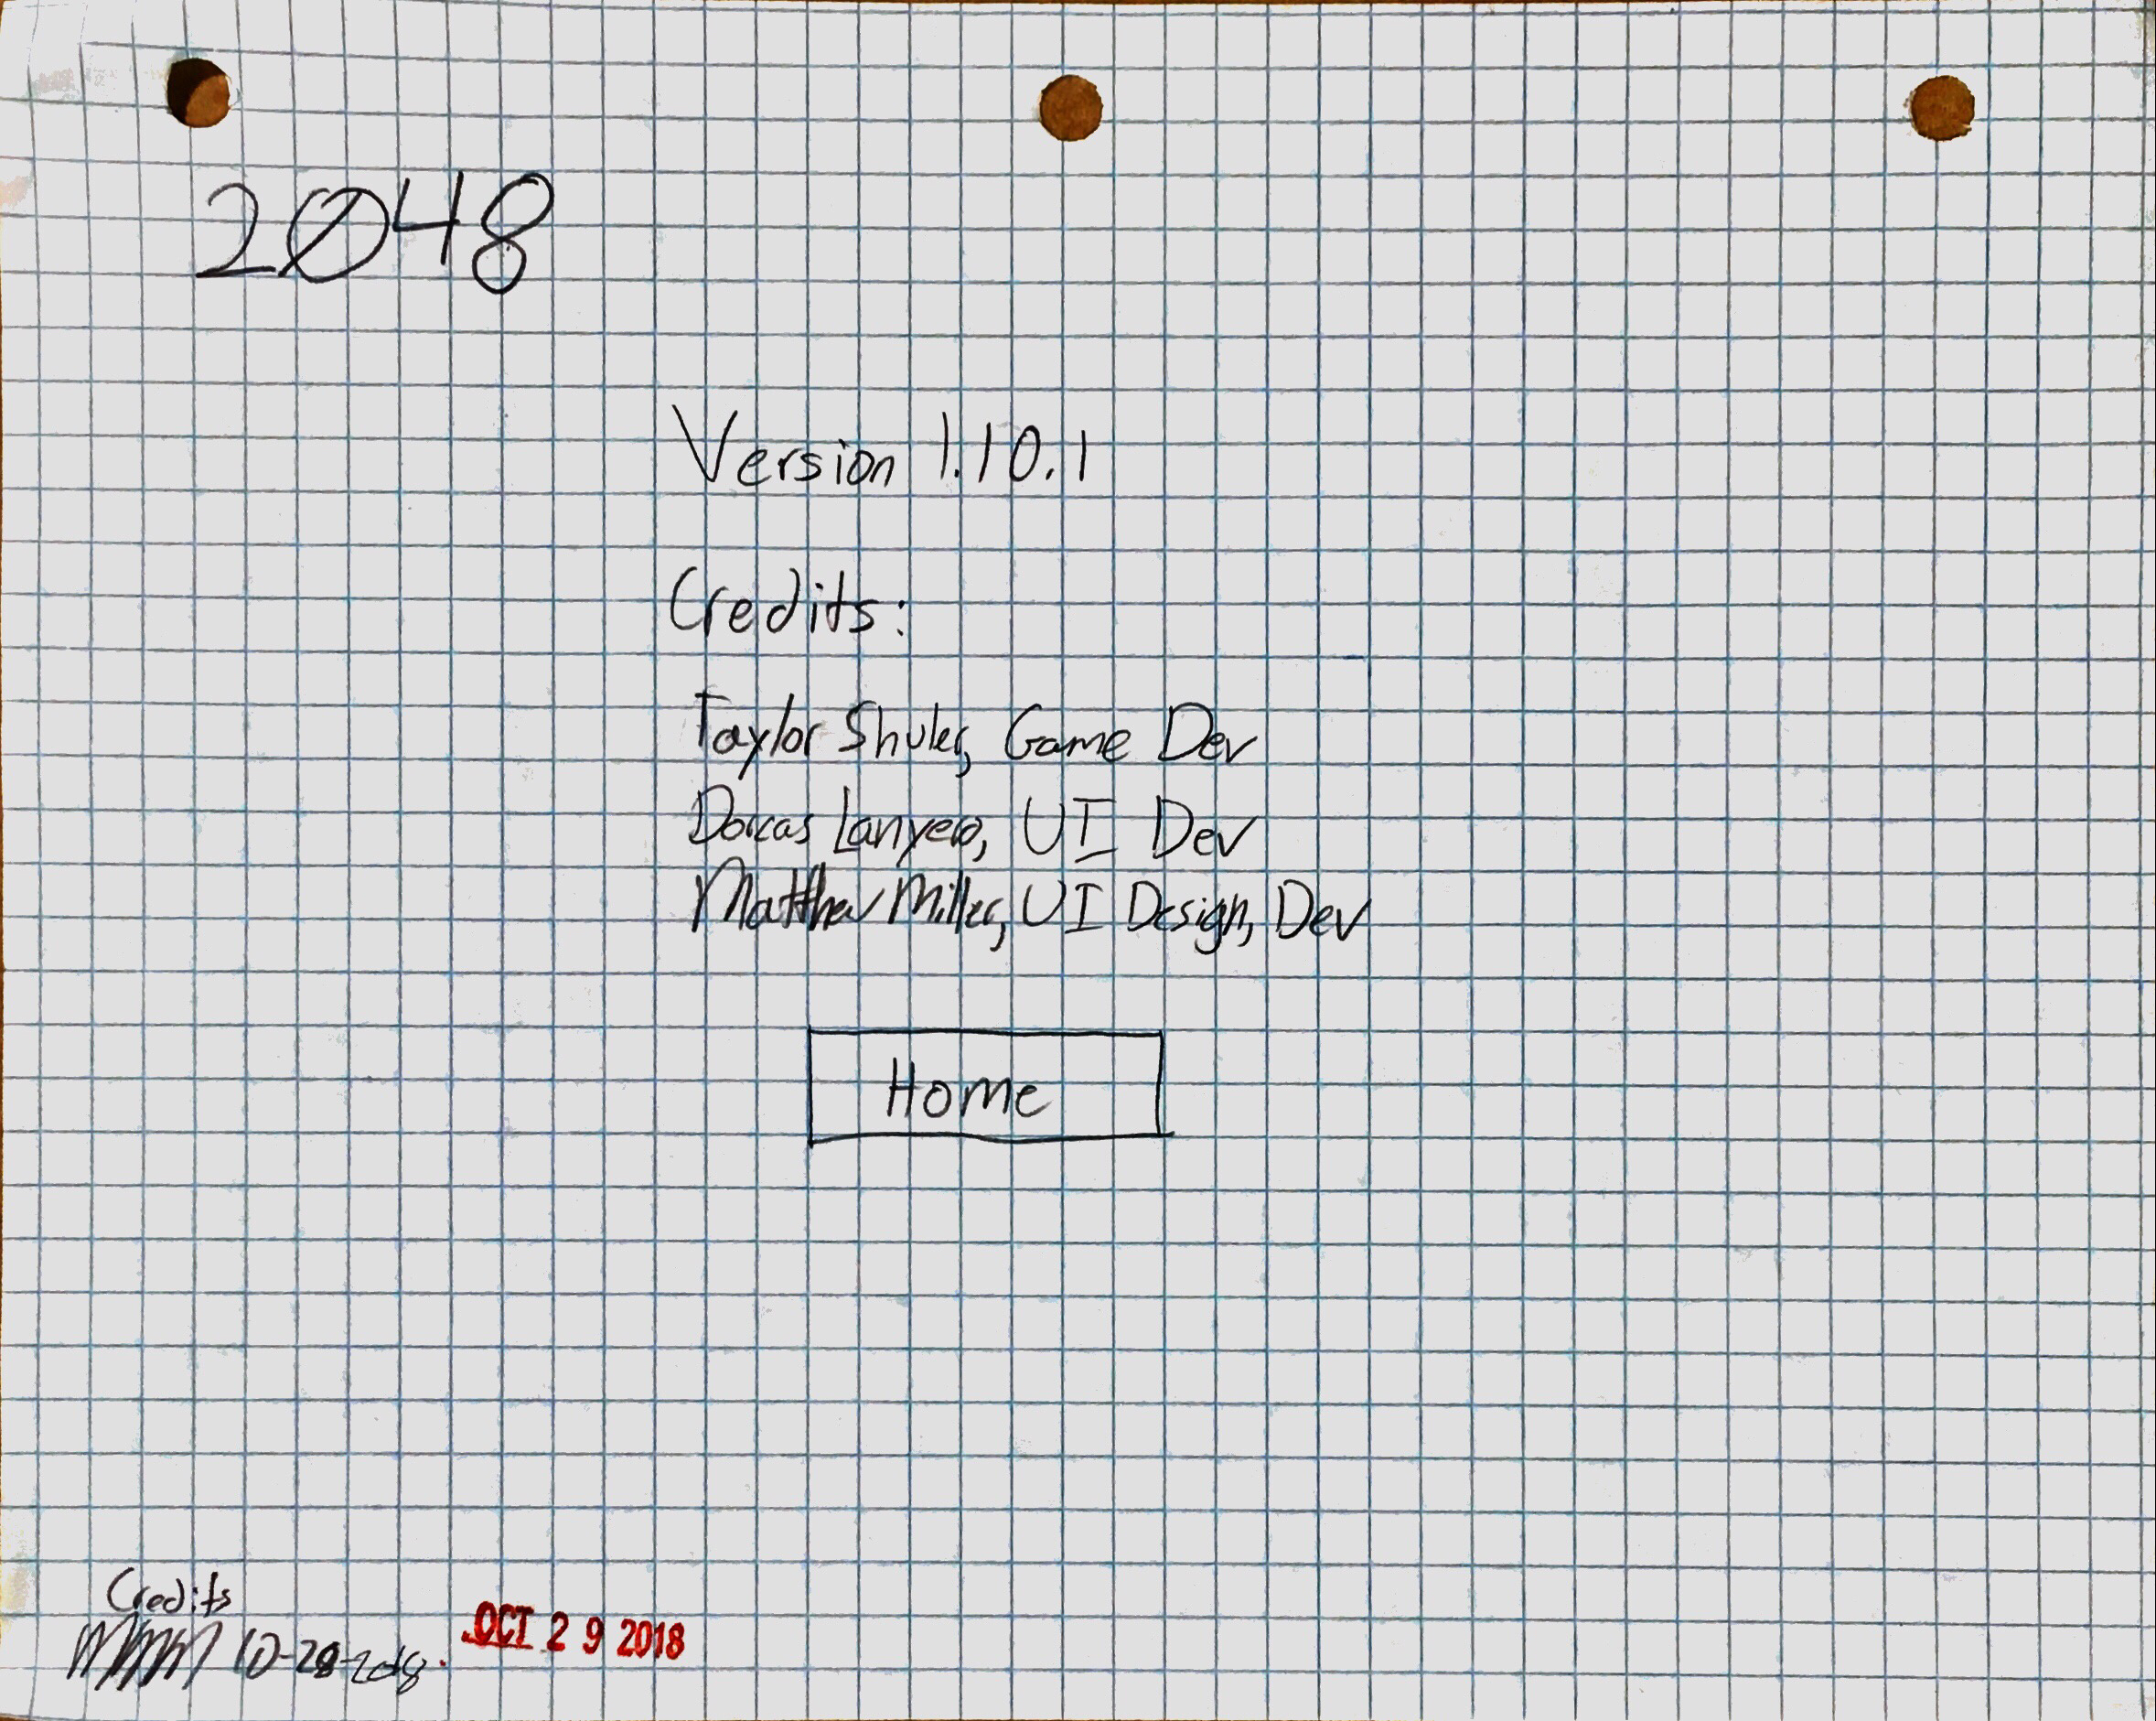 2048
Version 1.10.1
Credits:
Taylor Shuler, Game Dev
Dorcas Lanyero, UI Dev
Matthew Miller, UI Design, Dev
Home
Credits
10-28-2018
OCT 29 2018